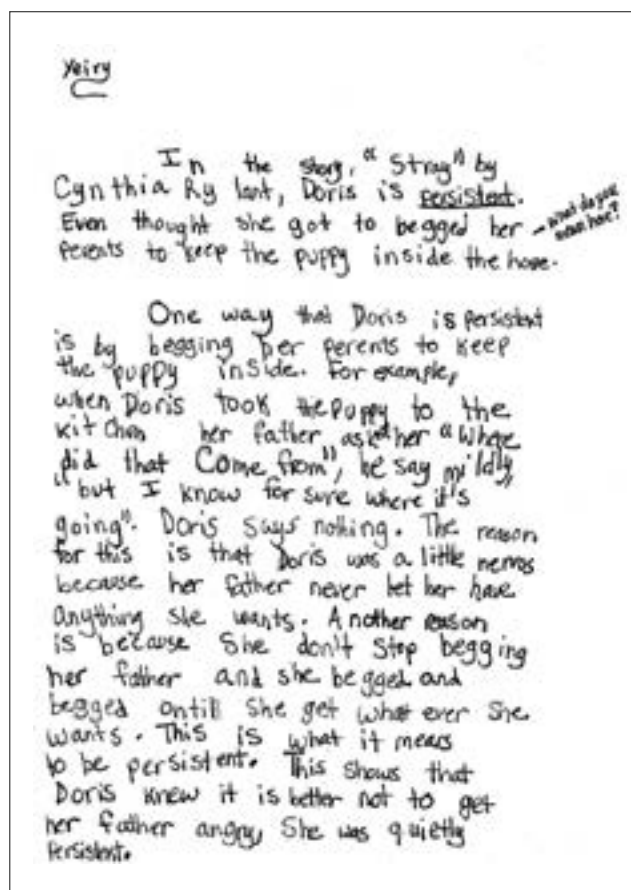 Yeiry
In the story, "Stray" by
Cynthia Ry lant, Doris is persistent.
Even thought she got to begged her
what do you
mean here?
perents to keep the puppy inside the hose.
One way that Doris is persistent
is by begging her perents to keep
the puppy inside. For example,
when Doris took the puppy to the
kitchen her father asked her "Where
did that Come from", he say mildly
"but I know for sure where it's
going". Doris says nothing. The reason
for this is that Doris was a little nervos
because her father never let her have
anything she wants. Another reason
is because She don't Stop begging
her father and she begged and
begged ontill She get what ever She
wants. This is what it means
to be persistent. This shows that
Doris knew it is better not to get
her father angry, She was quietly
persistent.